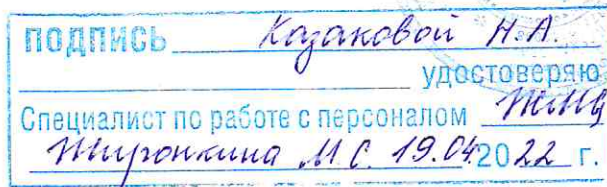 подпись Казаковой Н.А.
удостоверяю
Специалист по работе с персоналом
Миронкина М.С. 19.04.2022 г.